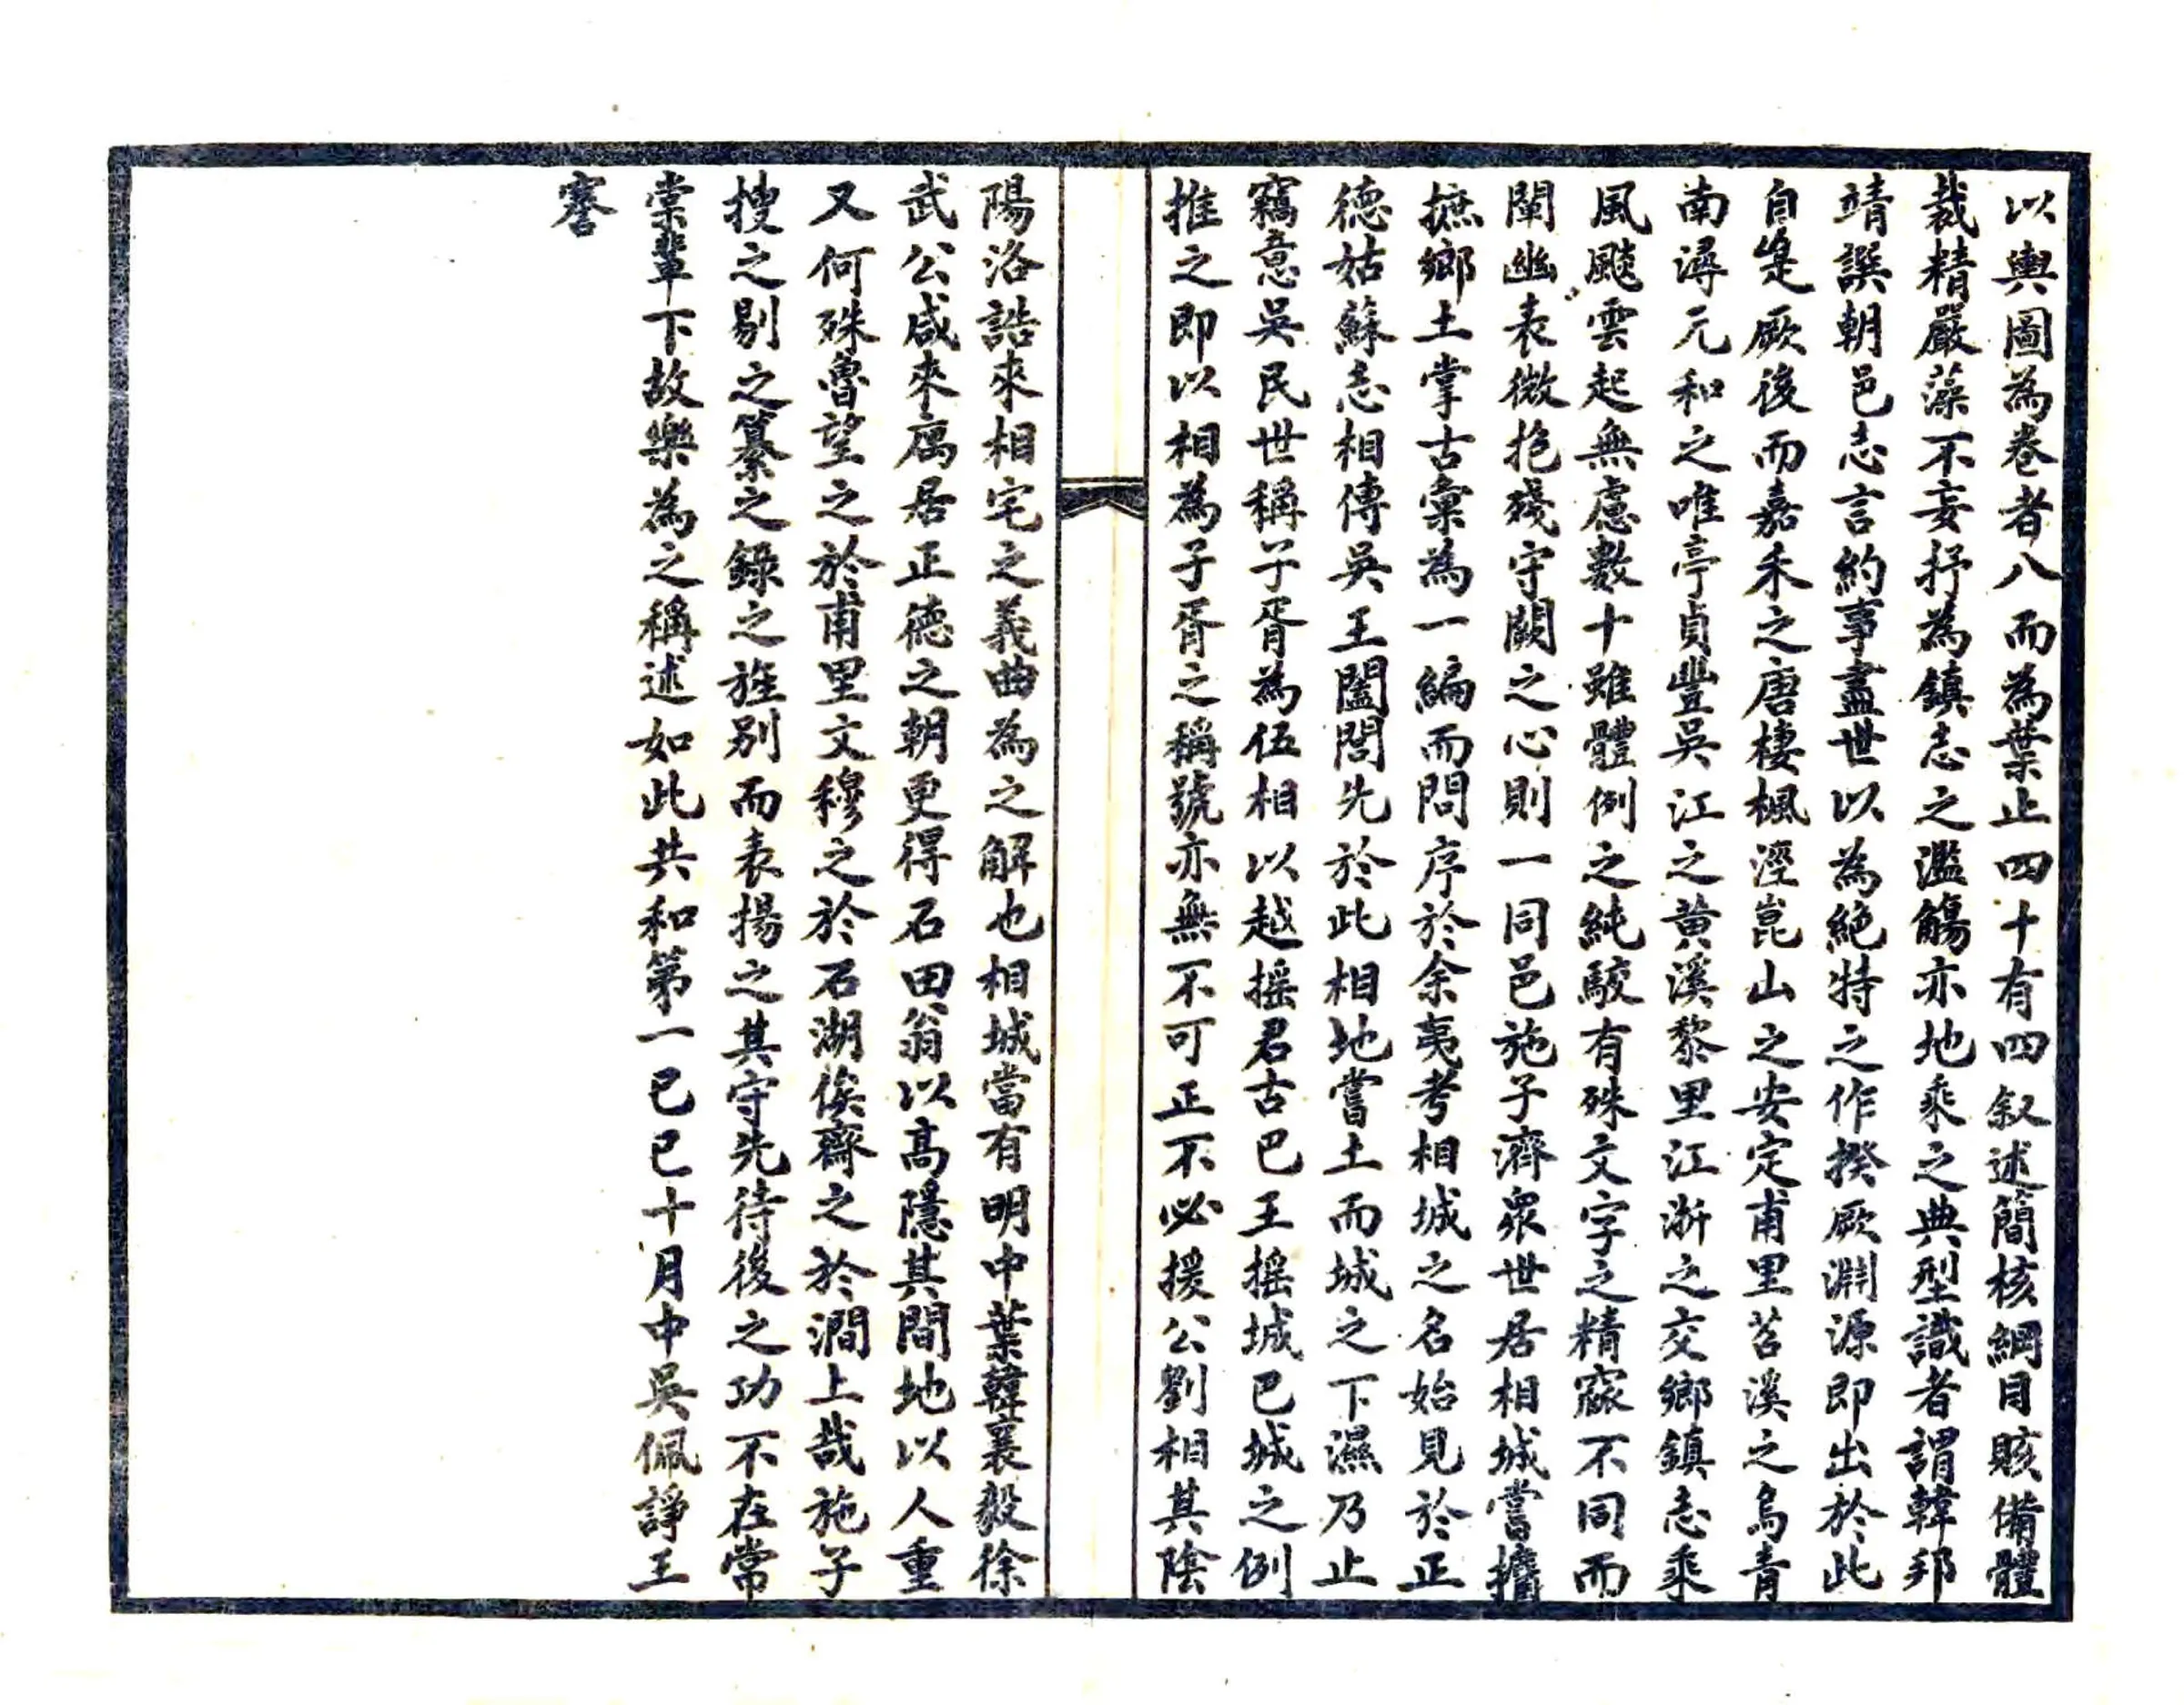 以輿圖為卷者八而為葉止四十有四叙述簡核綱目賅備體
裁精嚴藻不妄抒為鎮志之濫觴亦地乘之典型識者謂韓邦
靖譔朝邑志言約事盡世以為絕特之作揆厥淵源即出於此
自是厥後而嘉禾之唐棲楓涇崑山之安定甫里苕溪之烏青
南潯元和之唯亭貞豐吳江之黄溪黎里江浙之交鄉鎮志乘
風颷雲起無慮數十雖體例之純駁有殊文字之精窳不同而
闡幽表微抱殘守闕之心則一同邑施子濟衆世居相城嘗擕
摭鄉土掌古彙為一編而問序於余夷考相城之名始見於正
德姑蘇志相傳吳王闔閭先於此相地嘗土而城之下濕乃止
竊意吳民世稱子胥為伍相以越摇君古巴王摇城巴城之例
推之即以相為子胥之稱號亦無不可正不必援公劉相其陰
陽洛誥來相宅之義曲為之解也相城當有明中葉韓襄毅徐
武公咸來寓居正德之朝更得石田翁以高隱其間地以人重
又何殊魯望之於甫里文穆之於石湖俟齋之於澗上哉施子
搜之剔之纂之錄之旌别而表揚之其守先待後之功不在常
棠輩下故樂為之稱述如此共和第一己巳十月中吳佩諍王
謇